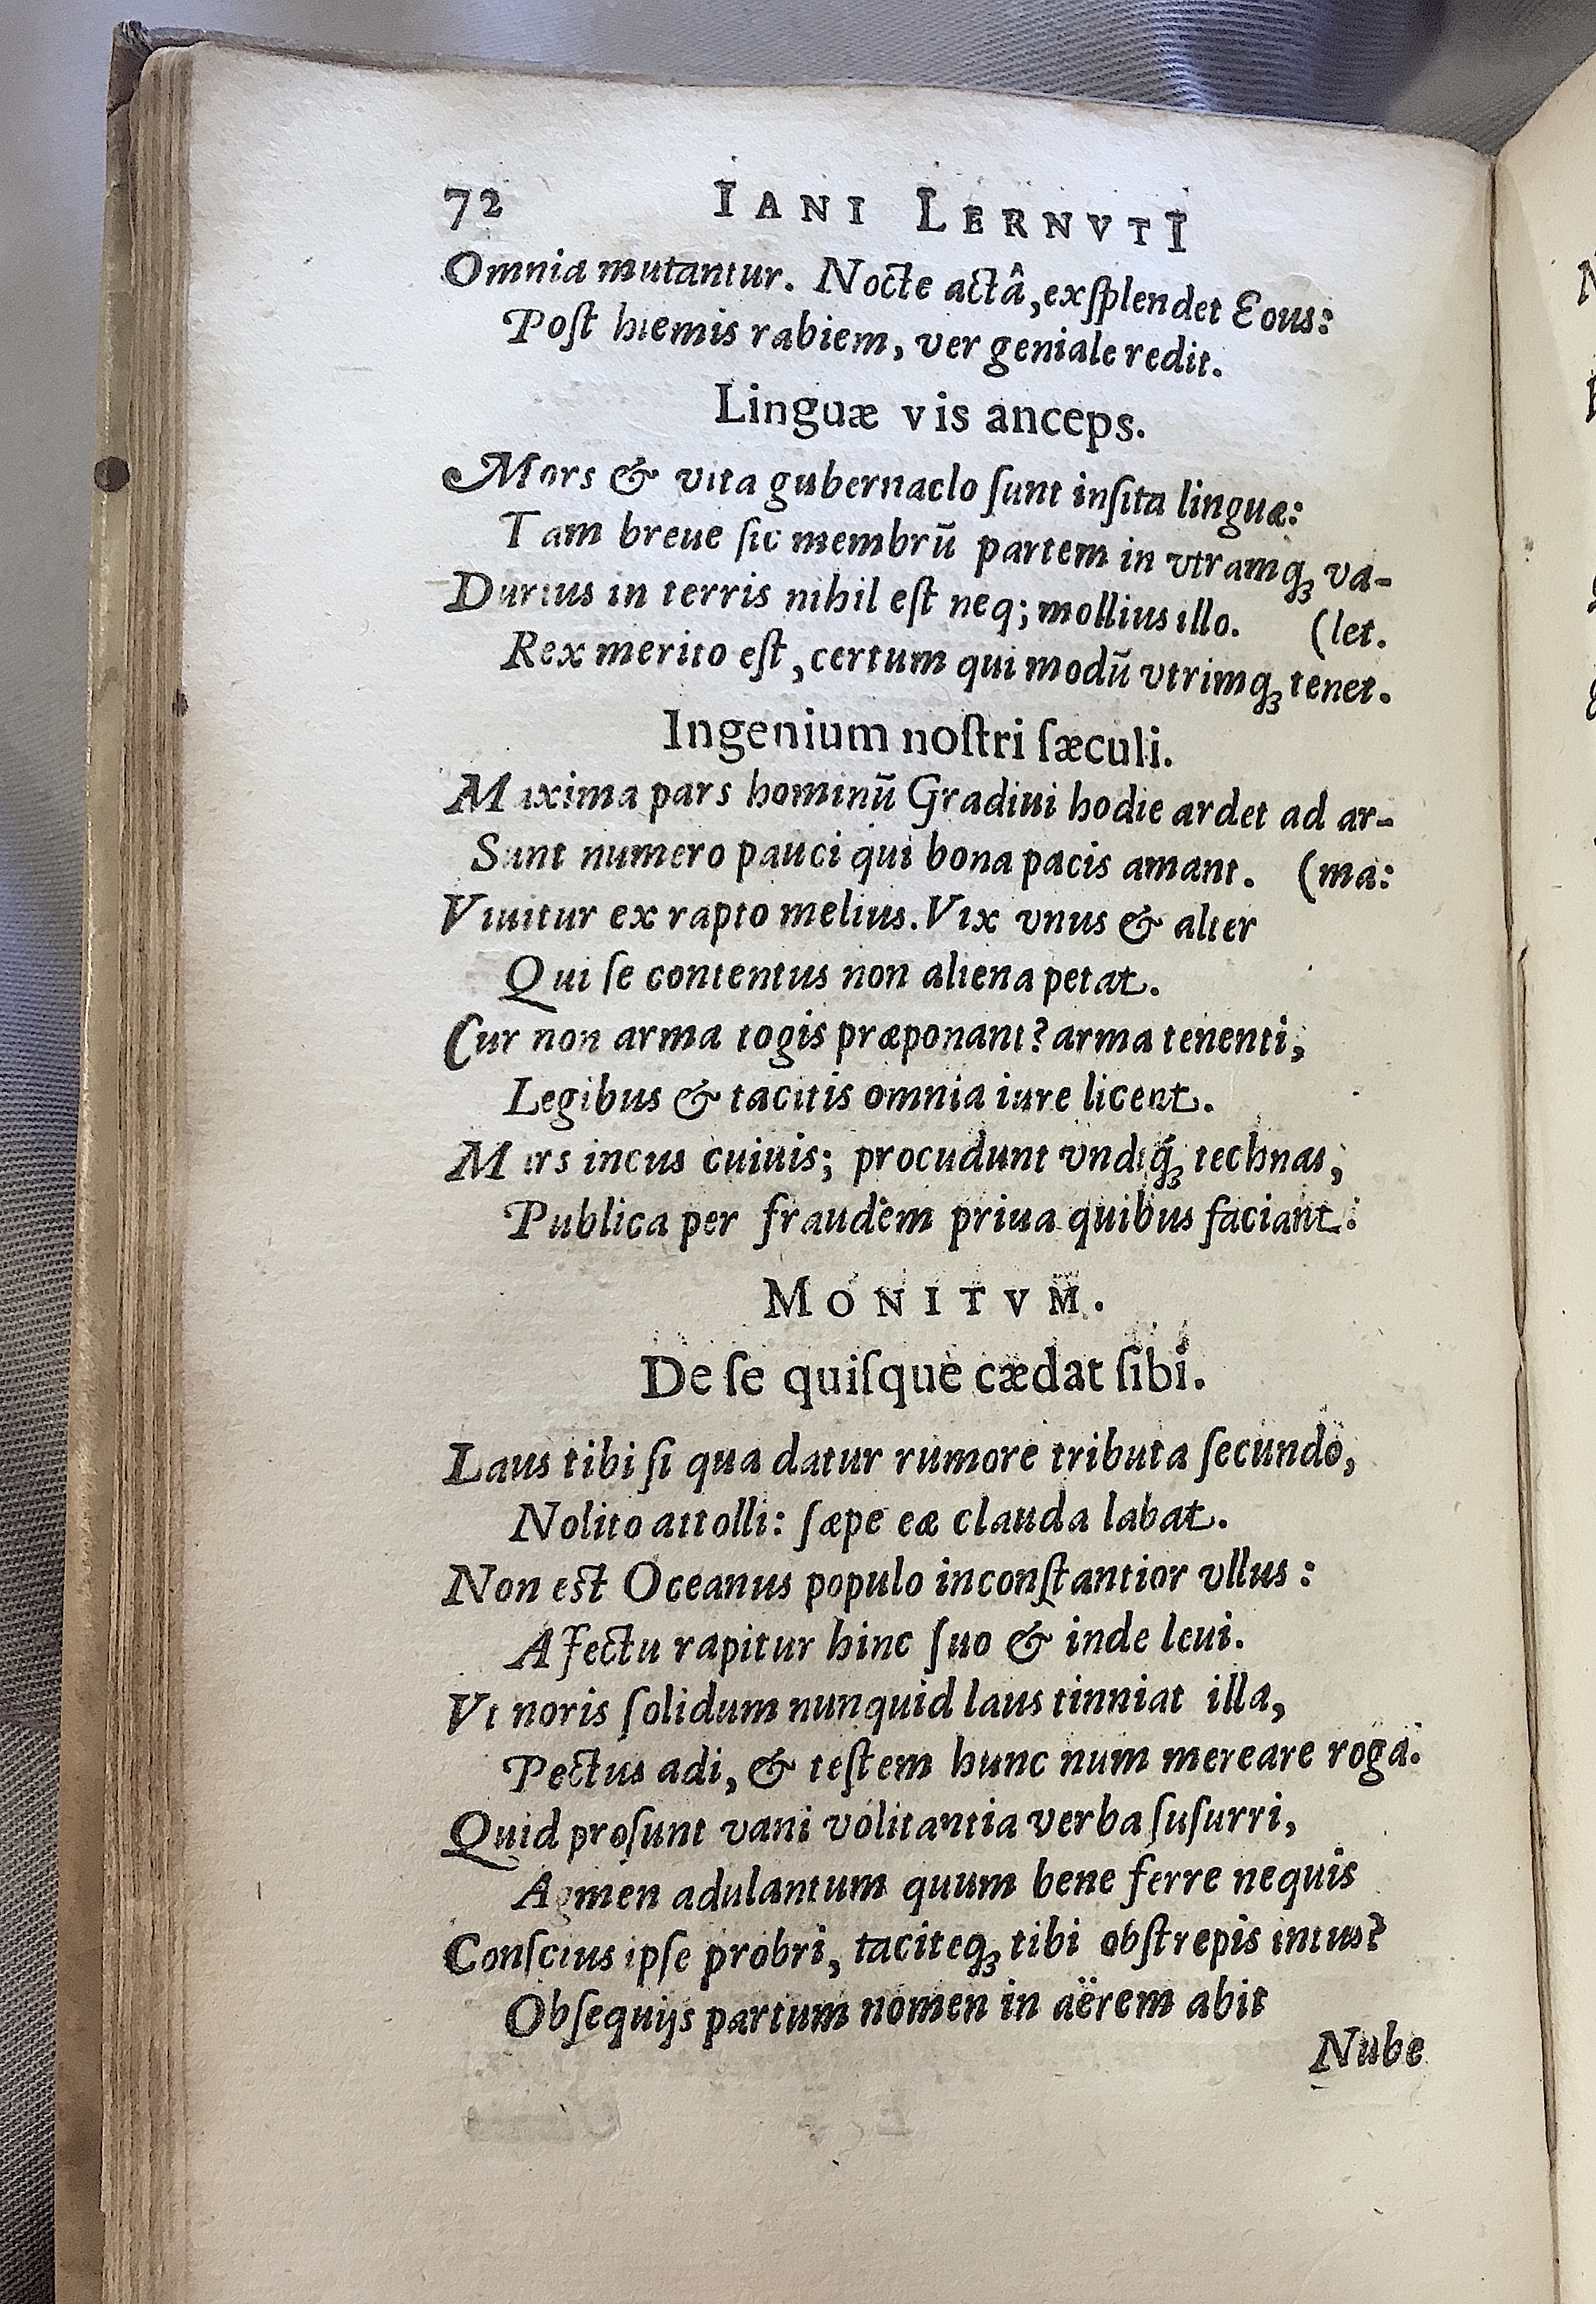 72 IANI LERNVTI
Omnia mutantur. Nocte actâ, exſplendet Eous:
Poſt hiemis rabiem, ver geniale redit.
Linguæ vis anceps.
Mors & vita gubernaclo ſunt inſita linguæ:
Tam breue ſic membrū partem in vtramq́ꝫ va-
Durius in terris nihil eſt neq; mollius illo. (let.
Rex merito eſt, certum qui modū vtrimqꝫ tenet.
Ingenium noſtri ſæculi.
Maxima pars hominū Gradiui hodie ardet ad ar-
Sunt numero pauci qui bona pacis amant. (ma:
Viuitur ex rapto melius. Vix vnus & alter
Qui ſe contentus non aliena petat.
Cur non arma togis præponant? arma tenenti,
Legibus & tacitis omnia iure licent.
Mars incus cuiuis; procudunt vndiq́ꝫ technas,
Publica per fraudem priua quibus faciant.
MONITVM.
De ſe quiſque cædat ſibi.
Laus tibi ſi qua datur rumore tributa ſecundo,
Nolito attolli: ſæpe eæ clauda labat.
Non eſt Oceanus populo inconſtantior vllus:
Affectu rapitur hinc ſuo & inde leui.
Vt noris ſolidum nunquid laus tinniat illa,
Pectus adi, & teſtem hunc num mereare roga.
Quid proſunt vani volitantia verba ſuſurri,
Agmen adulantum quum bene ferre nequis
Conſcius ipſe probri, taciteqꝫ tibi obſtrepis intus?
Obſequijs partum nomen in aërem abit
Nube